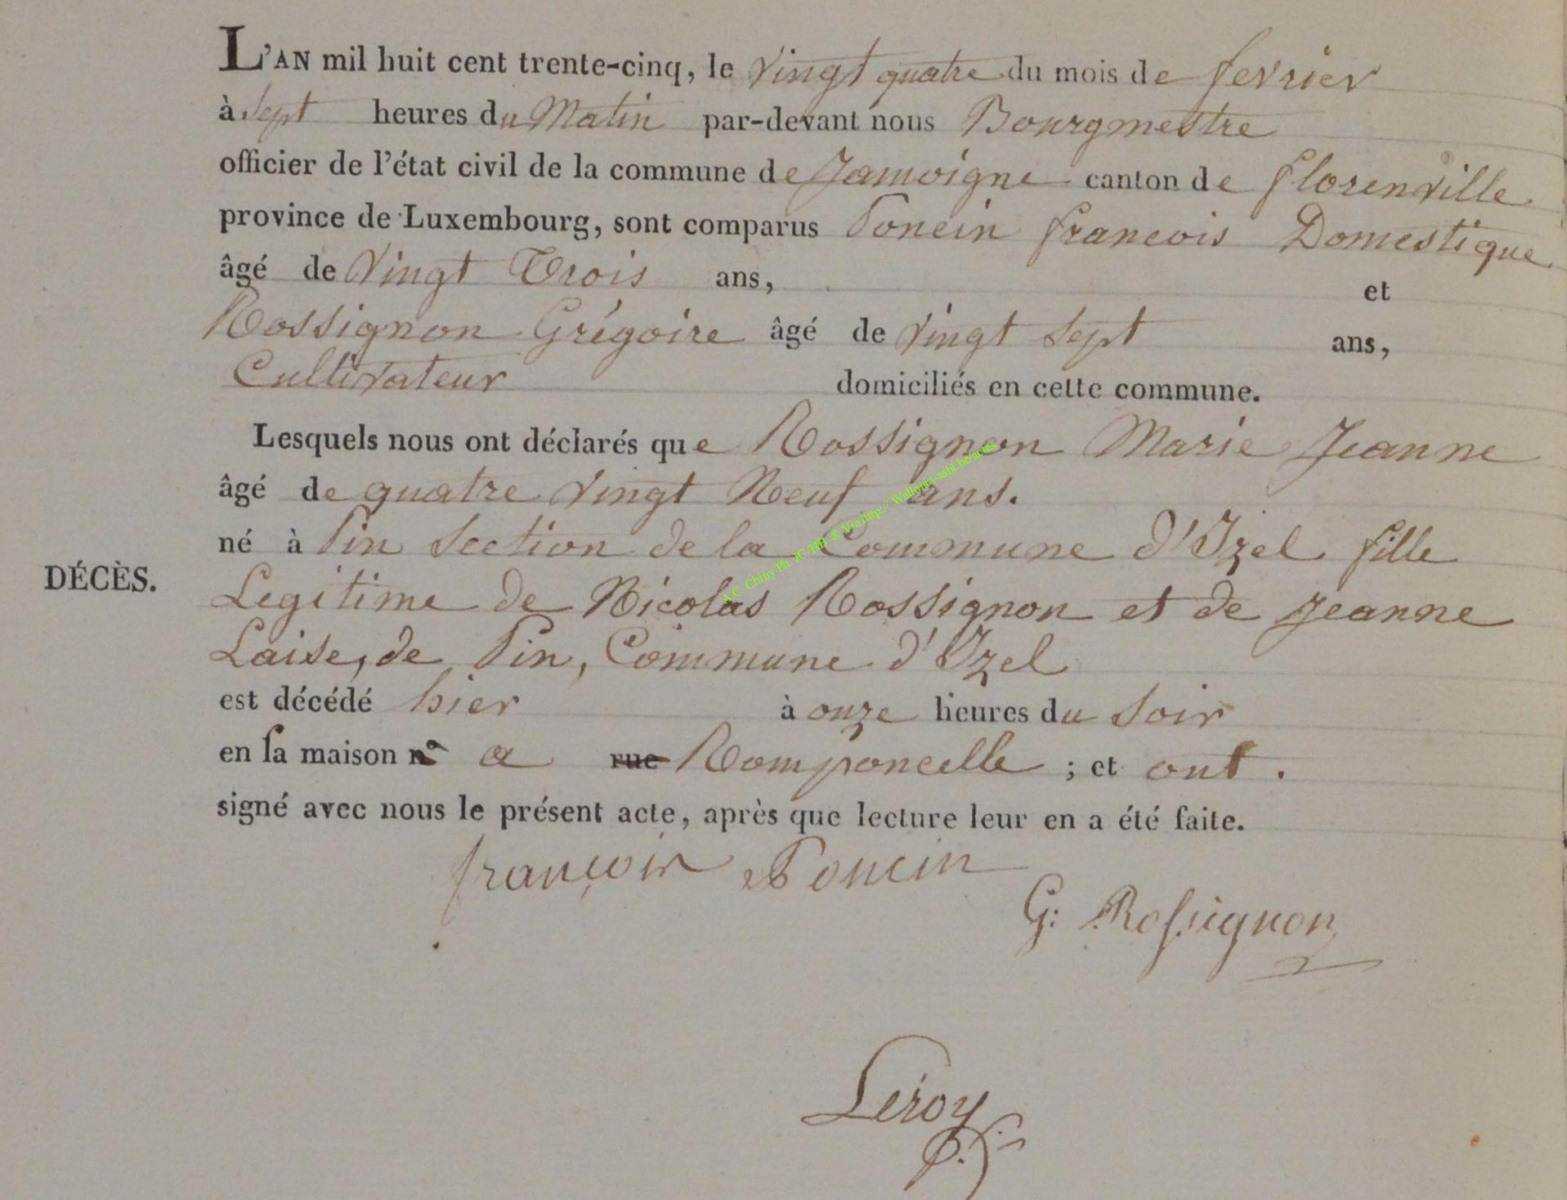 L'AN mil huit cent trente-cinq, le Vingt quatre du mois de fevrier
à Sept heures du Matin par-devant nous Bourgmestre
officier de l'état civil de la commune de Jamoigne canton de florenville
province de Luxembourg, sont comparus Poncin francois Domestique
âgé de Vingt Trois ans, et
Rossignon Grégoire âgé de Vingt Sept ans,
Cultivateur domiciliés en cette commune.
Lesquels nous ont déclarés que Rossignon Marie Jeanne
âgé de quatre Vingt Neuf ans.
né à Pin Section de la Commune d'Izel fille
DÉCÈS.
Legitime de Nicolas Rossignon et de Jeanne
Laise, de Pin, Commune d'Izel
est décédé hier à onze heures du Soir
en sa maison n° a rue Romponcelle ; et ont.
signé avec nous le présent acte, après que lecture leur en a été faite.
françois Poncin
G: Rossignon
Leroy